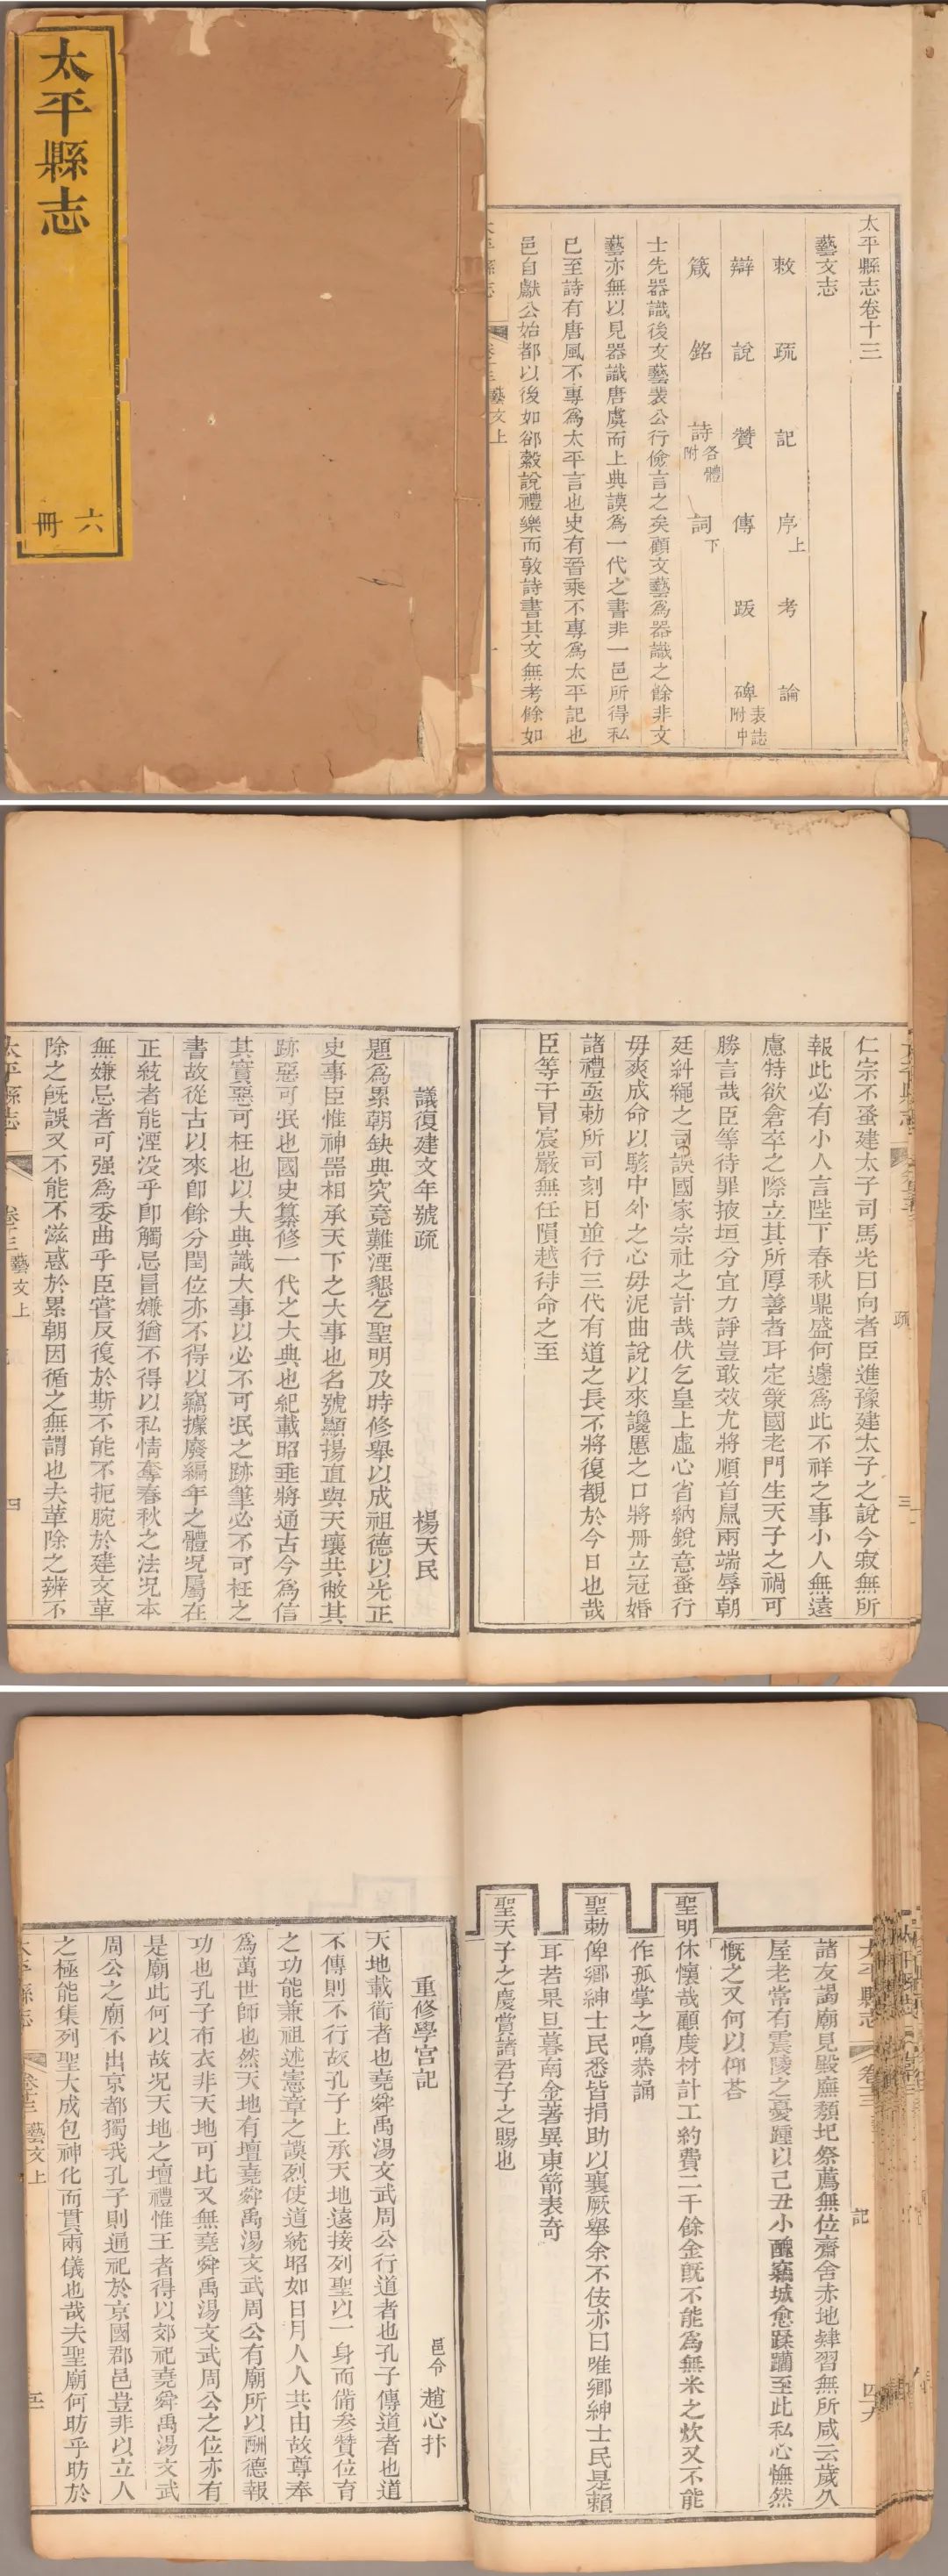 太平縣志
六冊
太平縣志卷十三
藝文志
敕 疏 記 序上 考 論
辯 說 贊 傳 跋 碑表誌附中
箴 銘 詩各體附 詞下
士先器識後文藝裴公行儉言之矣顧文藝爲器識之餘非文
藝亦無以見器識唐虞而上典謨爲一代之書非一邑所得私
已至詩有唐風不專爲太平言也史有晉乘不專爲太平記也
邑自獻公始都以後如郤縠說禮樂而敦詩書其文無考餘如
太平縣志 卷十三 藝文上
疏 三
仁宗不蚤建太子司馬光曰向者臣進豫建太子之說今寂無所
報此必有小人言陛下春秋鼎盛何遽爲此不祥之事小人無遠
慮特欲倉卒之際立其所厚善者耳定策國老門生天子之禍可
勝言哉臣等待罪掖垣分宜力諍豈敢效尤將順首鼠兩端辱朝
廷糾繩之司誤國家宗社之計哉伏乞皇上虛心省納銳意蚤行
毋爽成命以駭中外之心毋泥曲說以來讒慝之口將冊立冠婚
諸禮亟勅所司刻日並行三代有道之長不將復覩於今日也哉
臣等干冒宸嚴無任隕越待命之至
議復建文年號疏 楊天民
題爲累朝缺典究竟難湮懇乞聖明及時修舉以成祖德以光正
史事臣惟神噐相承天下之大事也名號顯揚直與天壤共敝其
跡惡可泯也國史纂修一代之大典也紀載昭垂將通古今爲信
其實惡可枉也以大典識大事以必不可泯之跡筆必不可枉之
書故從古以來卽餘分閏位亦不得以竊據廢編年之體况屬在
正統者能湮没乎卽觸忌冒嫌猶不得以私情奪春秋之法况本
無嫌忌者可强爲委曲乎臣嘗反復於斯不能不扼腕於建文革
除之旣誤又不能不滋惑於累朝因循之無謂也夫革除之辨不
太平縣志 卷十三 藝文上 四
太平縣志 卷十三 記
諸友謁廟見殿廡頽圮祭薦無位齋舍赤地肄習無所咸云歲久
屋老常有震陵之憂踵以己丑小醜竊城愈蹂躪至此私心憮然
慨之又何以仰荅
聖明休懷哉顧度材計工約費二千餘金旣不能爲無米之炊又不能
作孤掌之鳴恭誦
聖勅俾鄉紳士民悉皆捐助以襄厥舉余不佞亦曰唯鄉紳士民是賴
耳若果旦暮南金著異東箭表奇
聖天子之慶賞諸君子之賜也
重修學宮記 邑令 趙心抃
天地載衜者也堯舜禹湯文武周公行道者也孔子傳道者也道
不傳則不行故孔子上承天地遠接列聖以一身而備叅贊位育
之功能兼祖述憲章之謨烈使道統昭如日月人人共由故尊奉
爲萬世師也然天地有壇堯舜禹湯文武周公有廟所以酬德報
功也孔子布衣非天地可比又無堯舜禹湯文武周公之位亦有
是廟此何以故况天地之壇禮惟王者得以郊祀堯舜禹湯文武
周公之廟不出京都獨我孔子則通祀於京國郡邑豈非以立人
之極能集列聖大成包神化而貫兩儀也哉夫聖廟何昉乎昉於
太平縣志 卷十三 藝文上